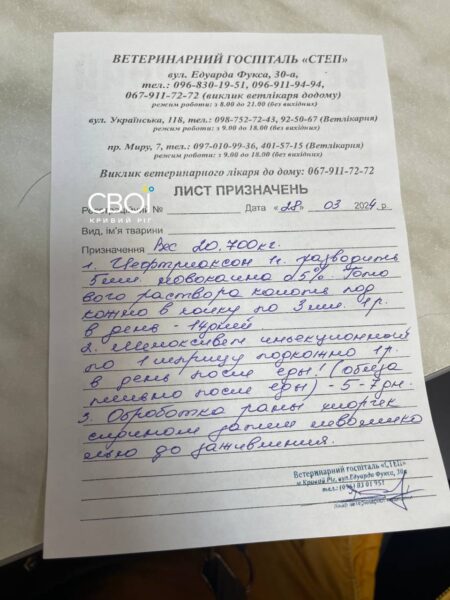 ВЕТЕРИНАРНИЙ ГОСПІТАЛЬ «СТЕП»
вул. Едуарда Фукса, 30-а,
тел.: 096-830-19-51, 096-911-94-94,
067-911-72-72 (виклик ветлікаря додому)
режим роботи: з 8.00 до 21.00 (без вихідних)
вул. Українська, 118, тел.: 098-752-72-43, 92-50-67 (Ветлікарня)
режим роботи: з 9.00 до 18.00 (без вихідних)
пр. Миру, 7, тел.: 097-010-99-36, 401-57-15 (Ветлікарня)
режим роботи: з 9.00 до 18.00 (без вихідних)
Виклик ветеринарного лікаря до дому: 067-911-72-72
СВОЇ
КРИВИЙ РІГ
ЛИСТ ПРИЗНАЧЕНЬ
Реєстраційний № Дата «28» 03 2024 р.
Вид, ім'я тварини
Призначення Вес 20,700кг.
1. Цефтриаксон 1г. разводить
5мл. новокаина 0,5%. Гото
вого раствора колоти под
кожно в холку по 3мл. 1р.
в день - 14дней.
2. инъекционный
по 1 шприцу подкожно 1р.
в день после еды! (обяза
тельно после еды) - 5-7дн.
3. Обработка раны хлоргек
сидином затем левомеко
лью до заживления.
Ветеринарний госпіталь «СТЕП»
м.Кривий Ріг, вул.Едуарда Фукса, 30а